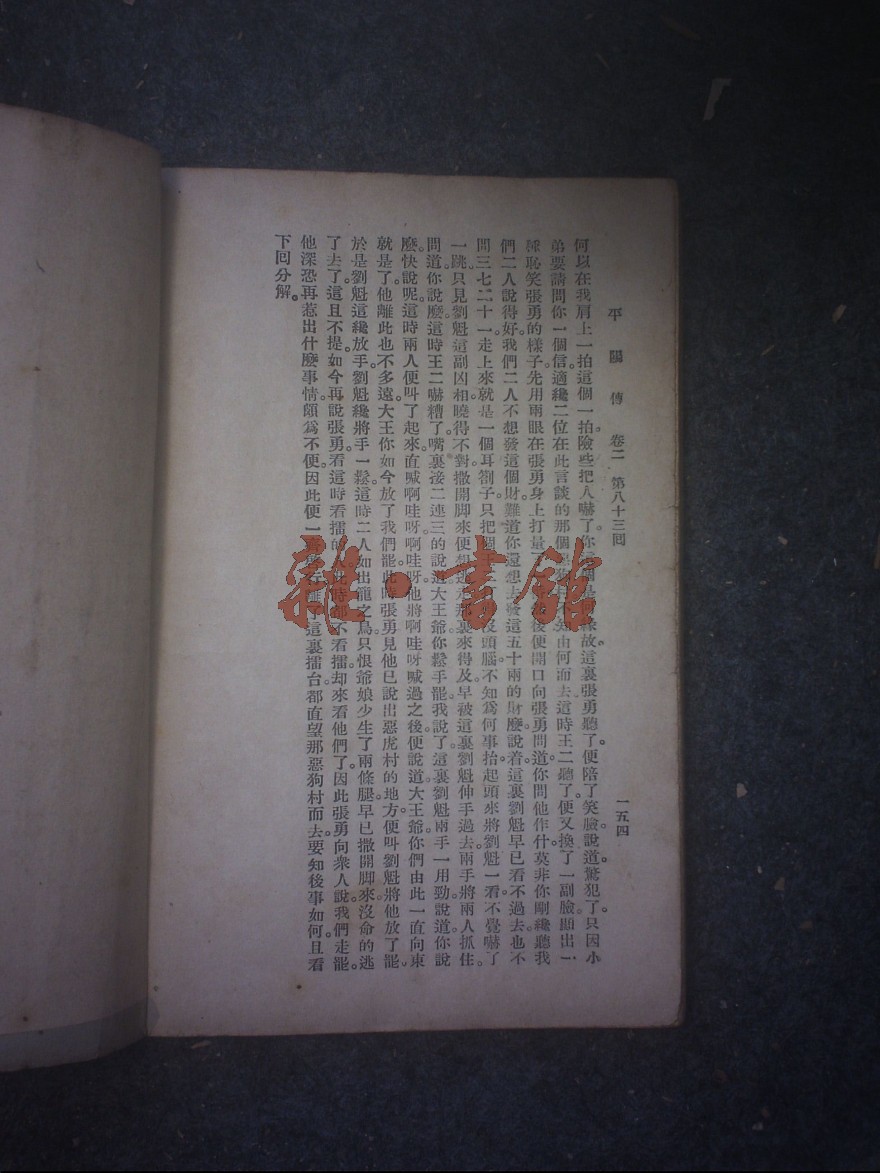 平陽傳 卷二 第八十三回 一五四
何以在我肩上一拍這個一拍險些把人嚇了你這個是緣故這裏張勇聽了便陪了笑臉說道驚犯了只因小
弟要請問你一個信適纔二位在此言談的那個知由何而去這時王二聽了便又換了一副臉顯出一
種恥笑張勇的樣子先用兩眼在張勇身上打量了後便開口向張勇問道你問他作什莫非你剛纔聽我
們二人說得好我們二人不想發這個財難道你還想去發這五十兩的財麼說着這裏劉魁早已看不過去也不
問三七二十一走上來就是一個耳劄子只把沒頭腦不知爲何事抬起頭來將劉魁一看不覺嚇了
一跳只見劉魁這副凶相曉得不對撒開脚來便想逃走那裏來得及早被這裏劉魁伸手過去兩手將兩人抓住
問道你說麼這時王二嚇糟了嘴裏接二連三的說道大王爺你鬆手罷我說了這裏劉魁兩手一用勁說道你說
麼快說呢這時兩人便叫了起來直喊啊哇呀啊哇呀他將啊哇呀喊過之後便說道大王爺你們由此一直向東
就是了他離此也不多遠大王你如今放了我們罷此時張勇見他已說出惡虎村的地方便叫劉魁將他放了罷
於是劉魁這纔放手劉魁纔將手一鬆這時二人如出籠之鳥只恨爺娘少生了兩條腿早已撒開脚來沒命的逃
了去了這且不提如今再說張勇看這時看擂的人此時都不看擂却來看他們了因此張勇向衆人說我們走罷
他深恐再惹出什麼事情頗爲不便因此便一離了這裏擂台都直望那惡狗村而去要知後事如何且看
下回分解。
雜·書館